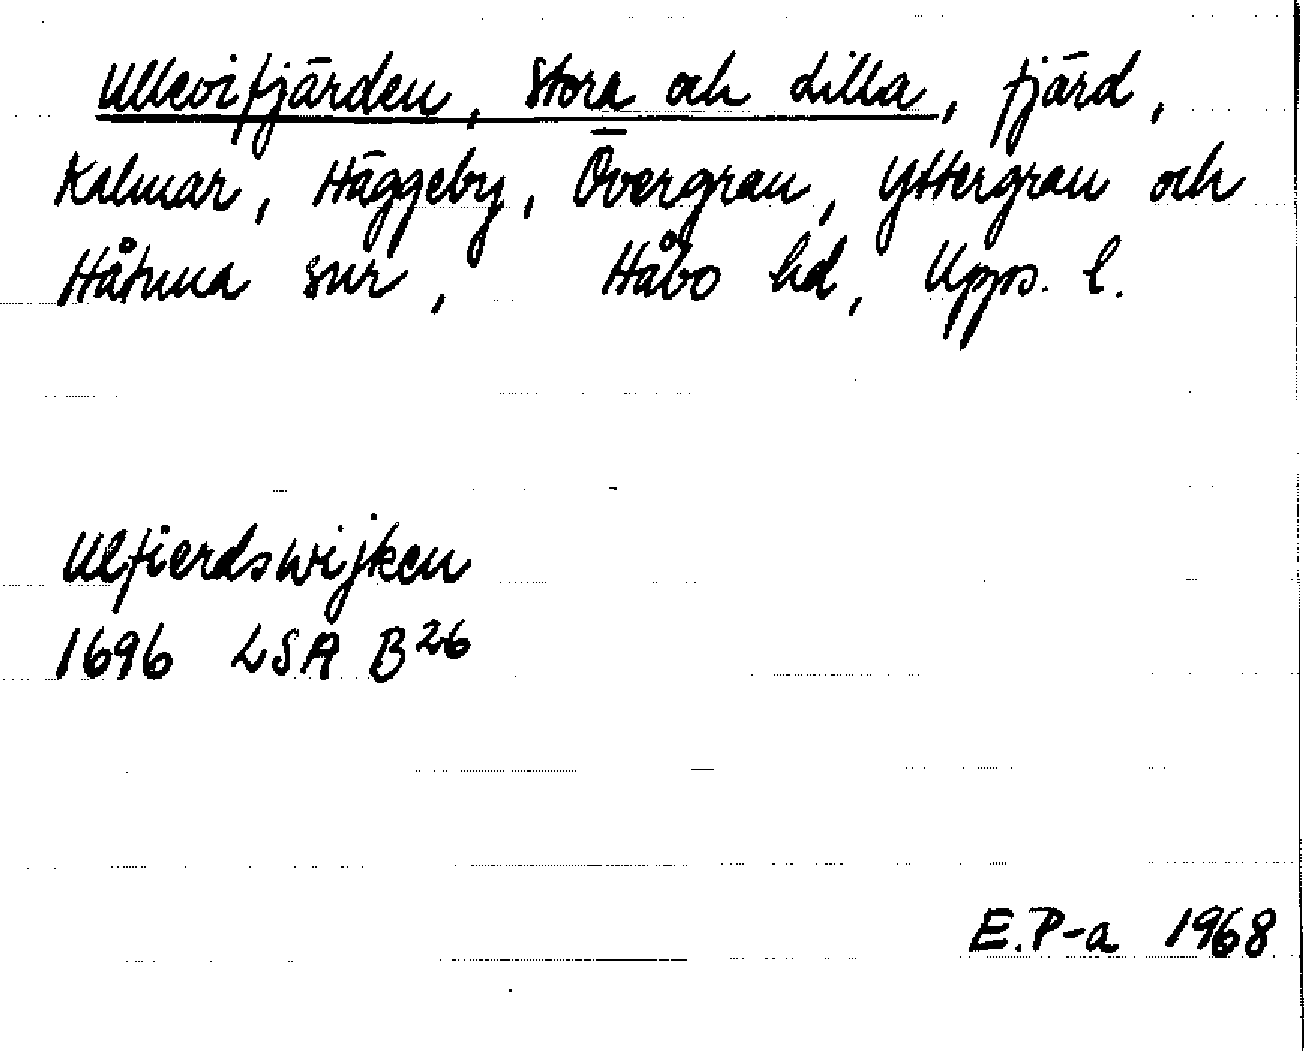 Ullevifjärden, Stora och Lilla, fjärd,
Kalmar, Häggeby, Övergran, Yttergran och
Håtuna snr, Håbo hd, Upps. l.
Ulfierdswijken
1696 LSA B26
E.P-a 1968